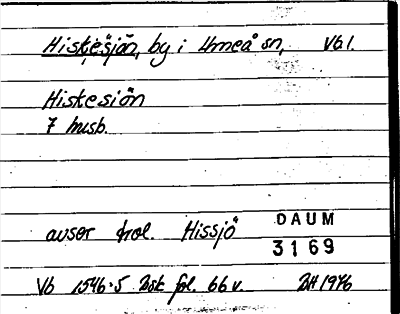 Hiskesjön, by i Umeå sn, Vbl.
Hiskesiön
7 husb.
avser trol. Hissjö
DAUM
3169
Vb 1546:5 Bsk fol. 66 v. BH 1946